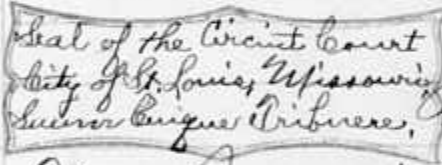 Seal of the Circuit Court
City of St. Louis, Missouri,
Suum Cuique Tribuere,